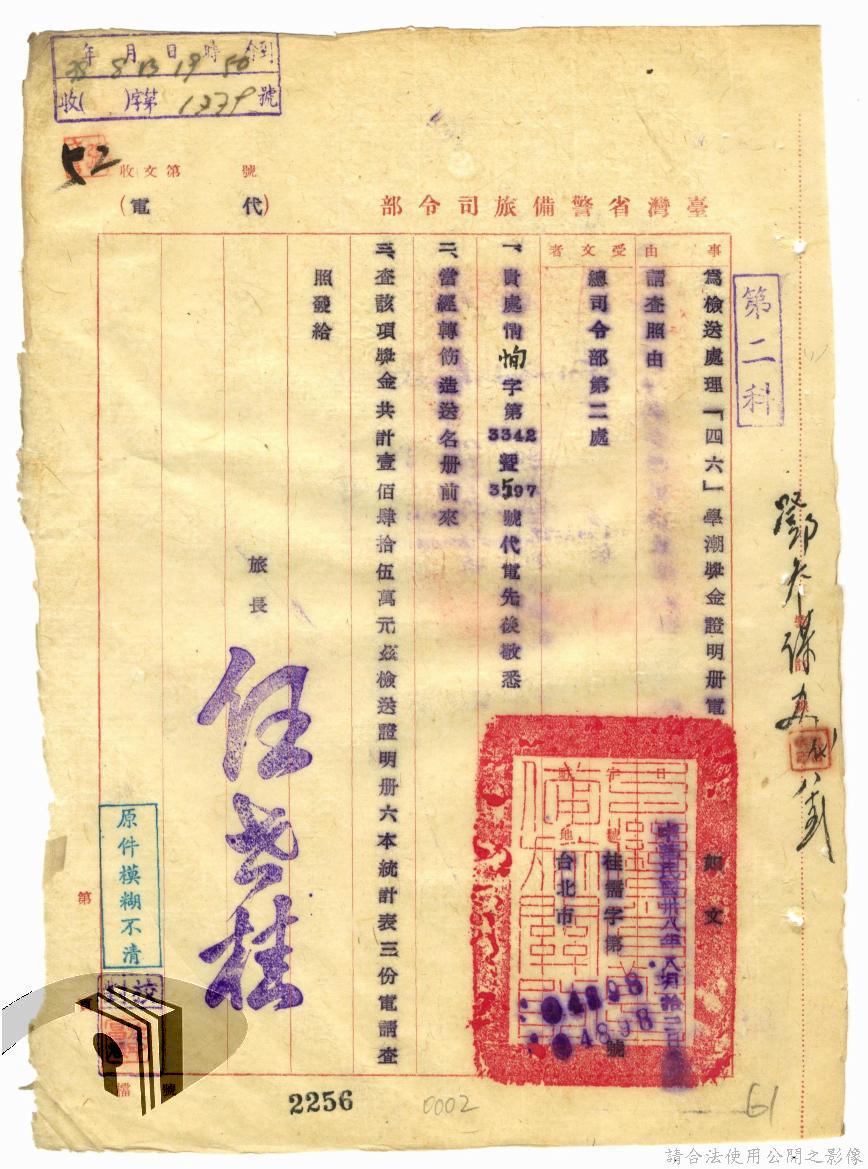 年 月 日 時 到
38 8 13 19 50
收( )字第 1339 號
52
收文第 號
臺灣省警備旅司令部(代電)
第二科
事由
為檢送處理「四六」學潮獎金證明册電
請查照由
受文者
總司令部第二處
如文
中華民國卅八年八月拾二日
桂需字第 04898 號
04898
台北市
一、貴處情恂字第3342暨3597號代電先後敬悉
二、當經轉飭造送名册前來
三、查該項獎金共計壹佰肆拾伍萬元茲檢送證明册六本統計表三份電請查
照發給
旅長
任世桂
原件模糊不清
第
檔 號
2256
0002
61
請合法使用公開之影像